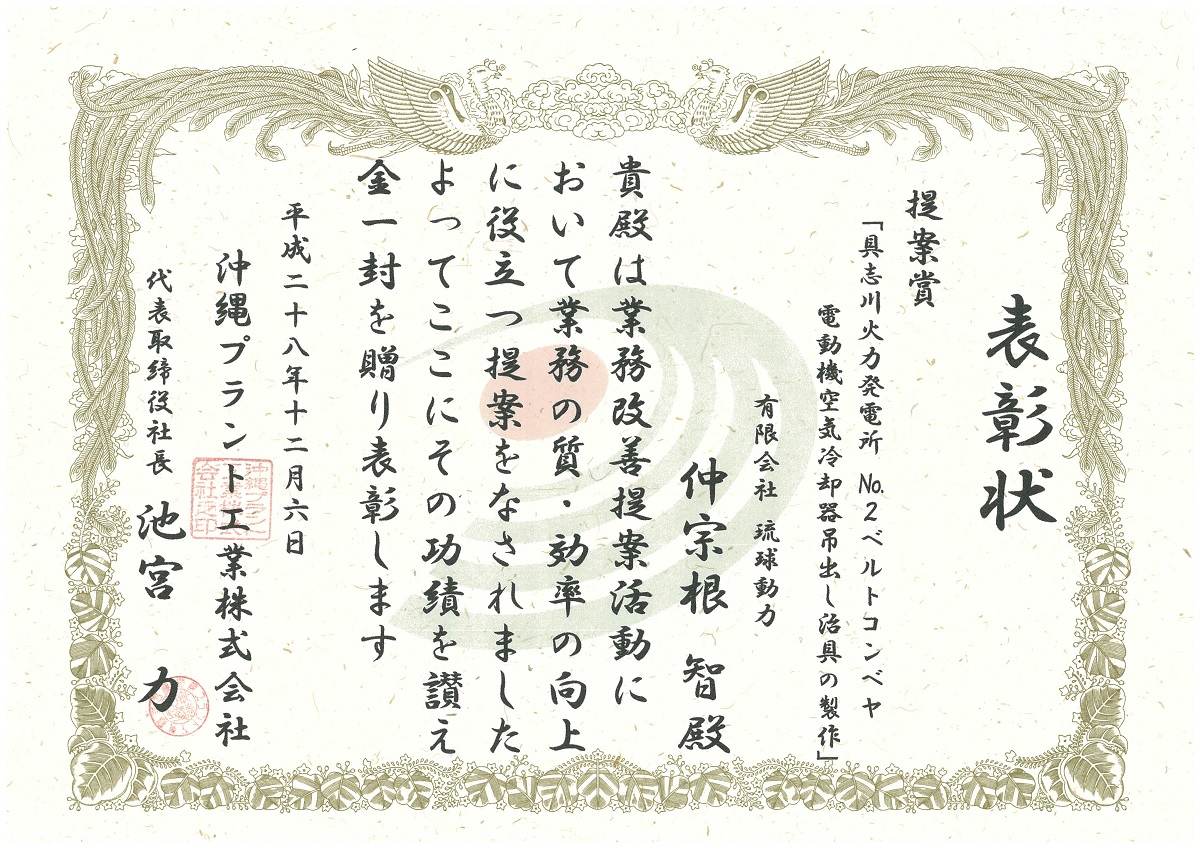 表彰状
提案賞
「具志川火力発電所 No.2ベルトコンベヤ
電動機空気冷却器吊出し治具の製作」
有限会社 琉球動力
仲宗根 智殿
貴殿は業務改善提案活動に
おいて業務の質・効率の向上
に役立つ提案をなされました
よってここにその功績を讃え
金一封を贈り表彰します
平成二十八年十二月六日
沖縄プラント工業株式会社
代表取締役社長 池宮 力